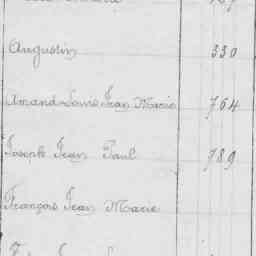 Augustin 330
Amand Louis Jean Marie 764
Joseph Jean Paul 789
François Jean Marie